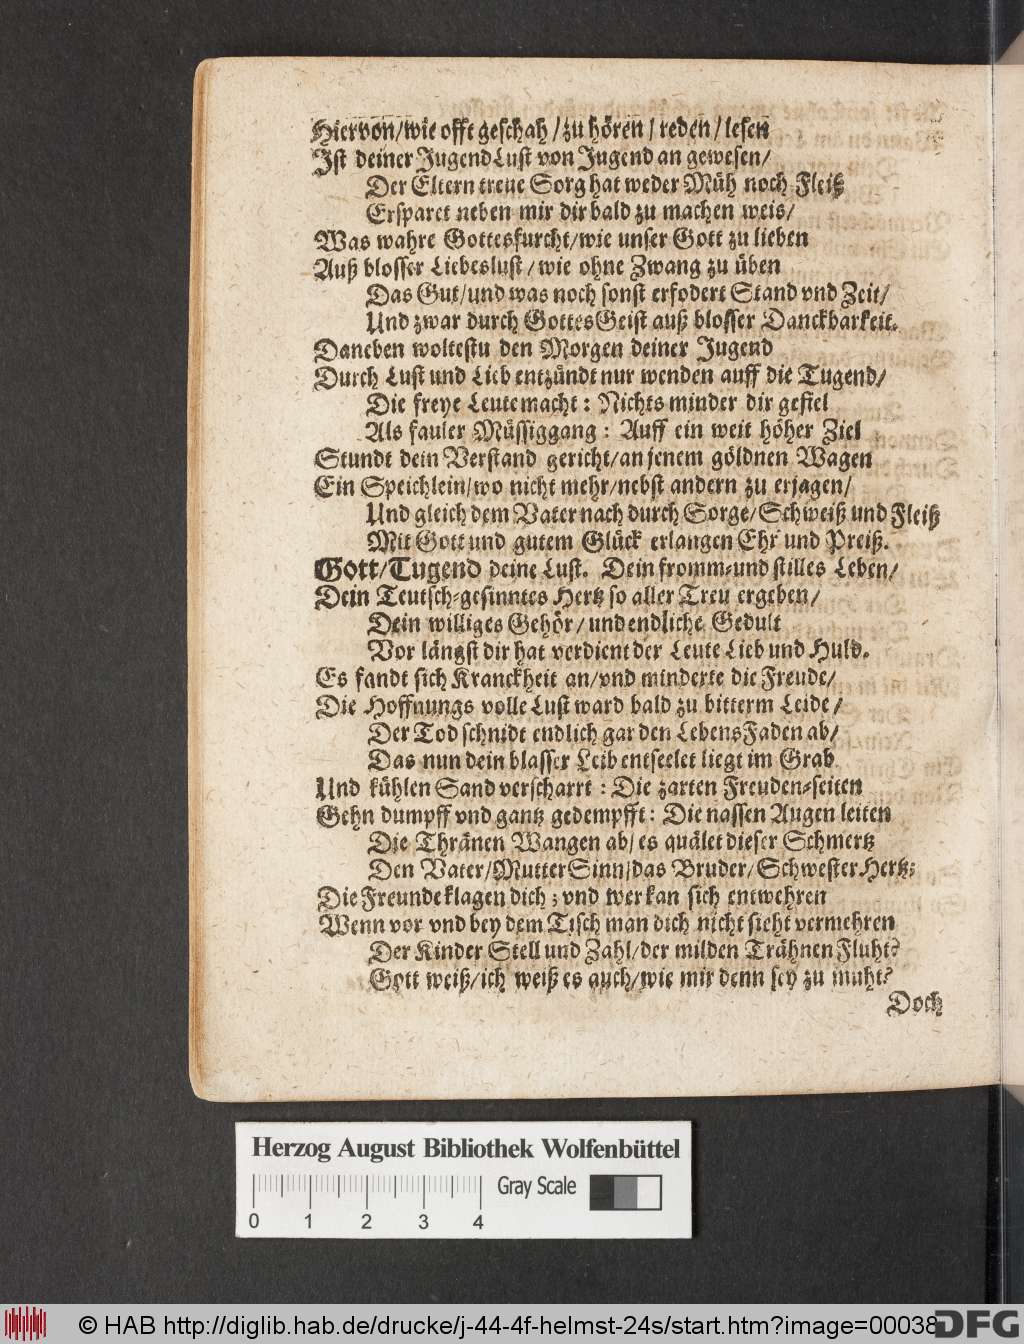 Hiervon/wie offt geschah/zu hören/reden/lesen
Ist deiner JugendLust von Jugend an gewesen/
Der Eltern treue Sorg hat weder Müh noch Fleiß
Ersparet neben mir dir bald zu machen weis/
Was wahre Gottesfurcht/wie unser Gott zu lieben
Auß blosser Liebeslust/wie ohne Zwang zu üben
Das Gut/und was noch sonst erfodert Stand vnd Zeit/
Und zwar durch GottesGeist auß blosser Danckbarkeit.
Daneben woltestu den Morgen deiner Jugend
Durch Lust und Lieb entzündt nur wenden auff die Tugend/
Die freye Leute macht: Nichts minder dir gefiel
Als fauler Müssiggang: Auff ein weit höher Ziel
Stundt dein Verstand gericht/an jenem göldnen Wagen
Ein Speichlein/wo nicht mehr/nebst andern zu erjagen/
Und gleich dem Vater nach durch Sorge/Schweiß und Fleiß
Mit Gott und gutem Glück erlangen Ehr und Preiß.
Gott/Tugend deine Lust. Dein fromm-und stilles Leben/
Dein Teutsch-gesinntes Hertz so aller Treu ergeben/
Dein williges Gehör/und endliche Gedult
Vor längst dir hat verdient der Leute Lieb und Huld.
Es fandt sich Kranckheit an/vnd minderte die Freude/
Die Hoffnungs volle Lust ward bald zu bitterm Leide/
Der Tod schnidt endlich gar den LebensFaden ab/
Das nun dein blasser Leib entseelet liegt im Grab
Und kühlen Sand verscharrt: Die zarten Freuden-seiten
Gehn dumpff vnd gantz gedempfft: Die nassen Augen leiten
Die Thränen Wangen ab/es quälet dieser Schmertz
Den Vater/MutterSinn/das Bruder/SchwesterHertz;
Die Freunde klagen dich; vnd wer kan sich entwehren
Wenn vor vnd bey dem Tisch man dich nicht sieht vermehren
Der Kinder Stell und Zahl/der milden Trähnen Fluht?
Gott weiß/ich weiß es auch/wie mir denn sey zu muht?
Doch
Herzog August Bibliothek Wolfenbüttel
Gray Scale
0 1 2 3 4
© HAB http://diglib.hab.de/drucke/j-44-4f-helmst-24s/start.htm?image=00038
DFG